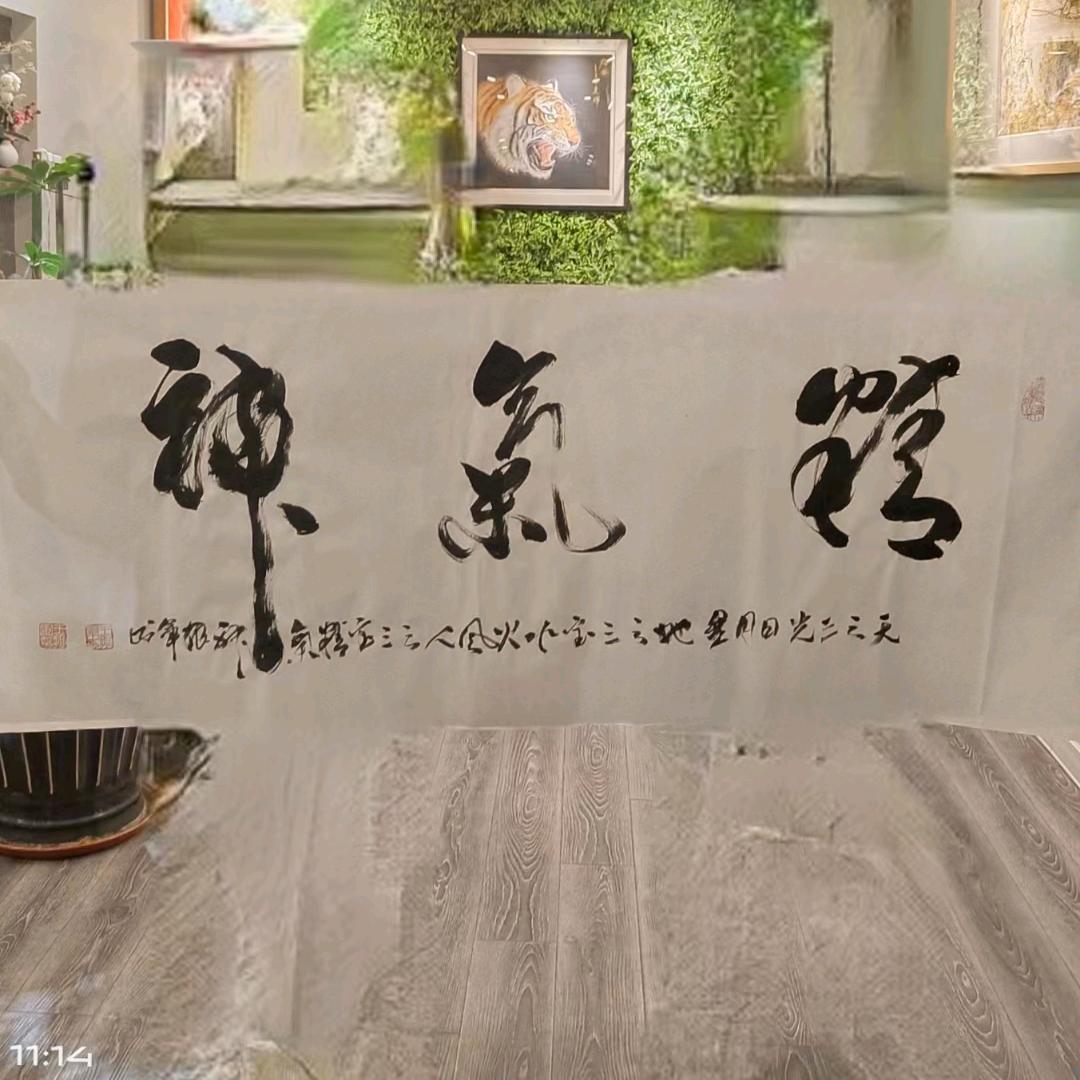 精氣神
天之三光日月星地之三宝水火风人之三宝精氣神
11:14